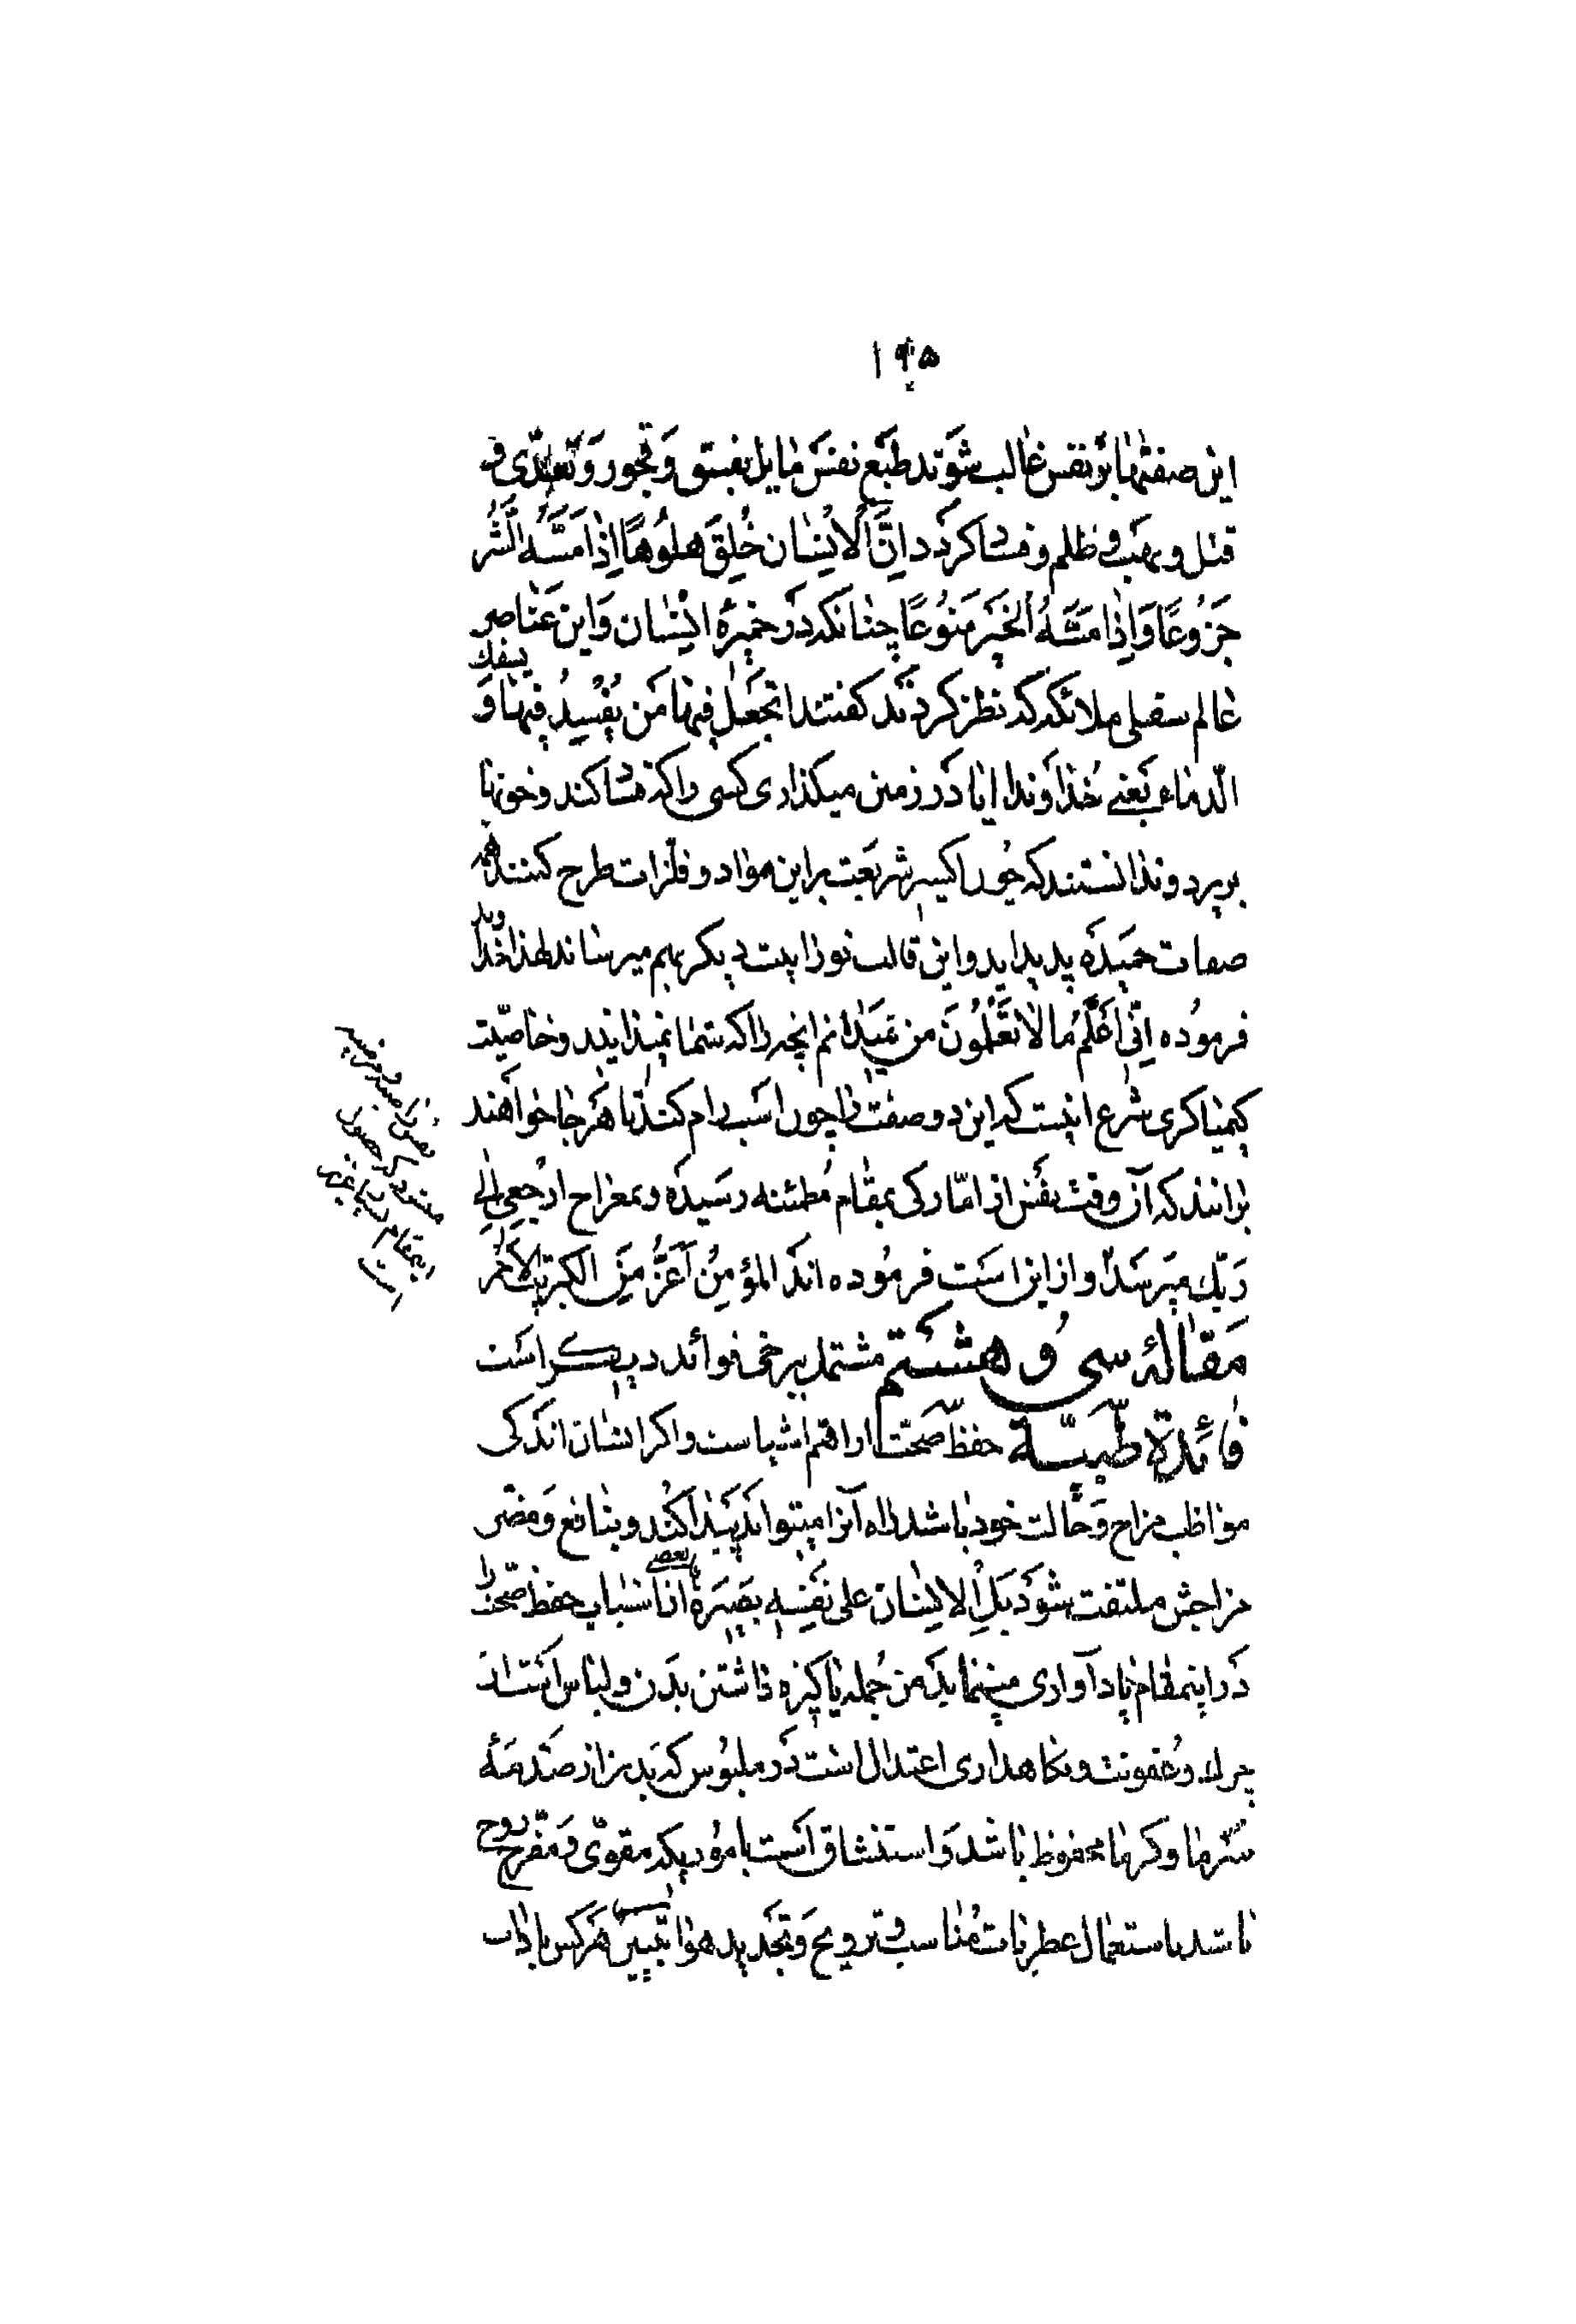 ۱۹۵
این صفتها بر نفس غالب شوند طبع نفس مایل بفسق و فجور و تعدّی و
قتل و نهب و ظلم و فساد کردد اِنَّ الْاِنْسان خُلِقَ هلُوعًا اِذا مَسَّهُ الشَّرُّ
جَزُوعًا وَاِذا مَسَّهُ الخَیْر مَنُوعًا چنانکه در خمیرهٔ انسان و این عناصر
عالم سفلی ملائکه که نظر کردند کفتند اتجعَل فیها مَن یُفْسِدُ فیها وَ یسفك
الدّماء یعنی خداوندا ایا در زمین میکذاری کسی را که فساد کند و خونها
بریزد و ندانستند که چون اکسیر شریعت بر این مواد و فلزات طرح کنند همه
صفات حمیده پدید اید و این قالب نورانیت دیکر بهم میرساند لهذا خداوند
فرموده اِنّی اَعْلَمُ ما لا تعْلَمُونَ من میدانم انچه را که شما نمیدانید و خاصیّت
کیمیاکری شرع اینست که این دو صفت را چون اسب رام کند تا هر جا خواهند
برانند که آن وقت نفس از امّارکی بمقام مُطمئنه رسیده و بمعراج ارْجِعِی اِلی
رَبِّك میرسد و از این است فرموده اند المؤمِنُ اَعَزُّ مِنَ الکبریت الاحمر
مَقالهٔ سی و هشتم مشتمل بر برخی فوائد دیکر است
فائدة طبیّة حفظ صحّت از اهم اشیاست و اکر انسان اندکی
مواظب مزاج و حالت خود باشد راه آنرا میتواند پیدا کند و بنافع و مضر
مزاجش ملتفت شود بَلِ الاِنْسان علی نَفْسِه بصیرة اما بعضی اسباب حفظ صحّت را
در اینمقام یاد آوری مینماید من جمله پاکیزه داشتن بدن و لباس است از
چرك و عفونت و نکاهداری اعتدال است در ملبوس که بدن از صدمهٔ
سرما و کرما محفوظ باشد و استنشاق است بامُوریکه مقوّی و مفرّح روح
باشد باستعمال عطریات مُناسب و ترویح و تجدید هوا هرکس باداب